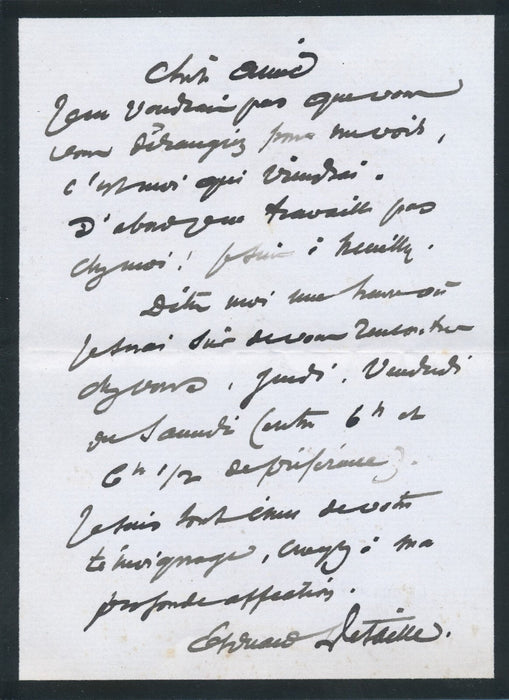 Cher ami
Je ne voudrais pas que vous
vous dérangiez pour me voir,
c'est moi qui viendrai.
D'abord je ne travaille pas
chez moi! je suis à Neuilly.
Dites moi une heure où
je serai sûr de vous rencontrer
chez vous, jeudi, Vendredi
ou Samedi (entre 6h et
6h 1/2 de préférence).
Je suis tout ému de votre
témoignage, croyez à ma
profonde affection.
Edouard Detaille.